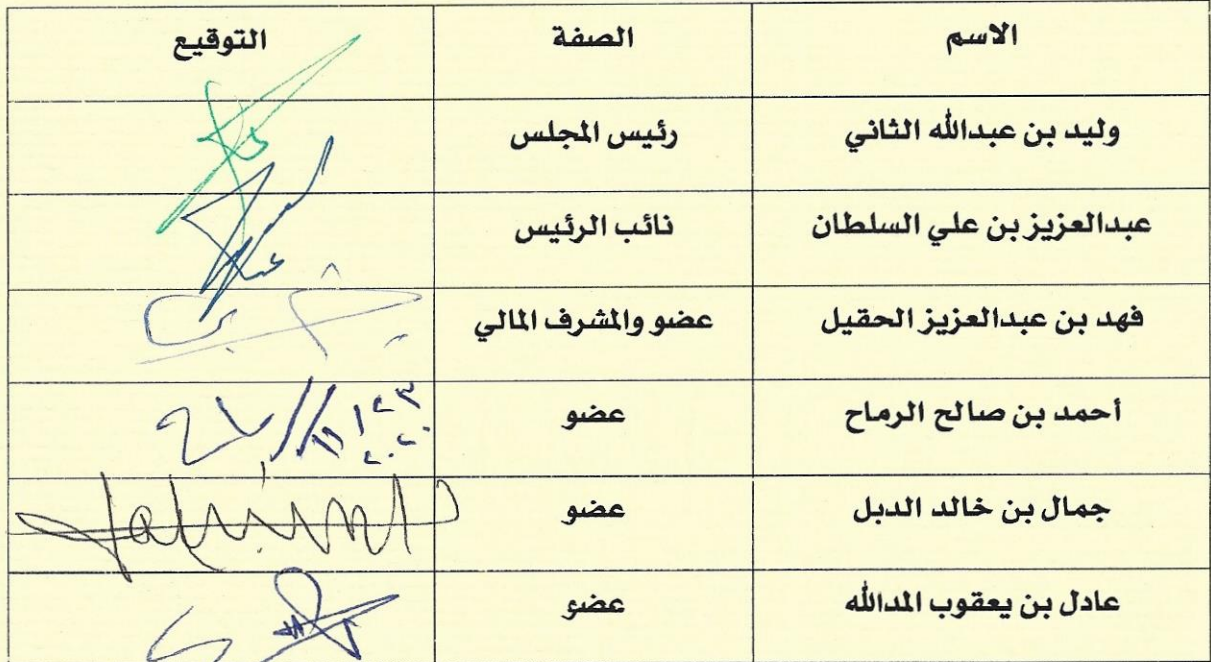 الاسم الصفة التوقيع
وليد بن عبدالله الثاني رئيس المجلس
عبدالعزيز بن علي السلطان نائب الرئيس
فهد بن عبدالعزيز الحقيل عضو والمشرف المالي
أحمد بن صالح الرماح عضو
جمال بن خالد الدبل عضو
عادل بن يعقوب المدالله عضو